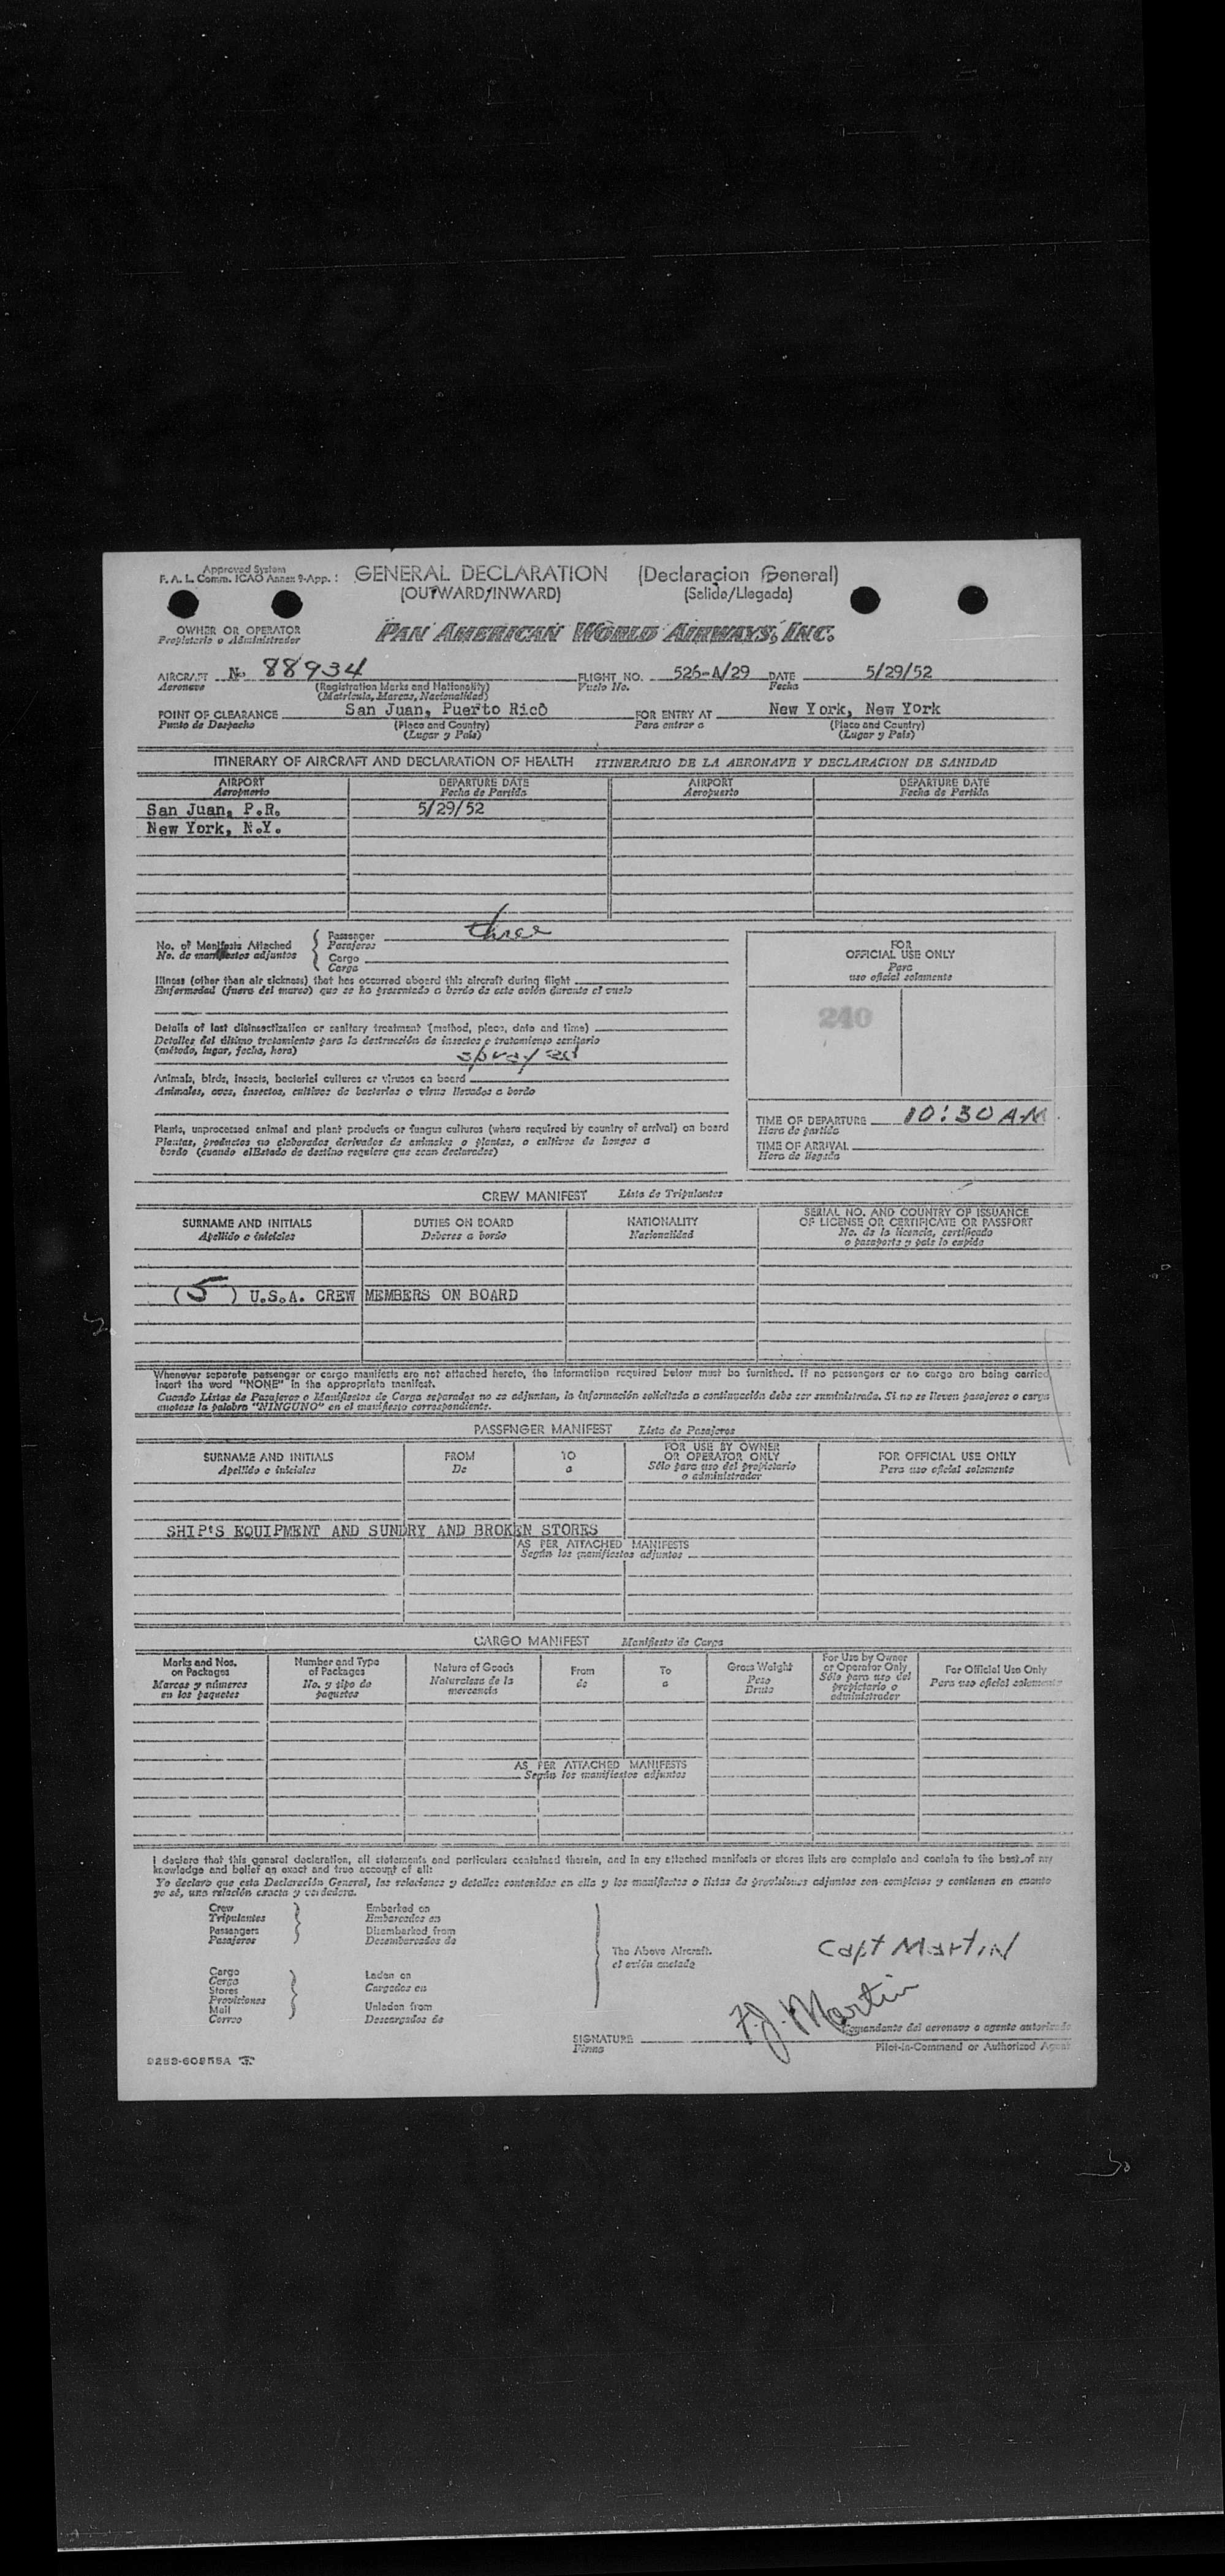 Approved System
F. A. L. Comm. ICAO Annex 9-App. 1
GENERAL DECLARATION (Declaracion General)
(OUTWARD/INWARD) (Salida/Llegada)
OWNER OR OPERATOR
Propietario o Administrador
PAN AMERICAN WORLD AIRWAYS, INC.
AIRCRAFT No 88934 FLIGHT NO. 526-A/29 DATE 5/29/52
Aeronave (Registration Marks and Nationality) Vuelo No. Fecha
(Matricula, Marcas, Nacionalidad)
POINT OF CLEARANCE San Juan, Puerto Rico FOR ENTRY AT New York, New York
Punto de Despacho (Place and Country) Para entrar a (Place and Country)
(Lugar y País) (Lugar y País)
ITINERARY OF AIRCRAFT AND DECLARATION OF HEALTH ITINERARIO DE LA AERONAVE Y DECLARACION DE SANIDAD
AIRPORT DEPARTURE DATE AIRPORT DEPARTURE DATE
Aeropuerto Fecha de Partida Aeropuerto Fecha de Partida
San Juan, P.R. 5/29/52
New York, N.Y.
No. of Manifests Attached
No. de manifiestos adjuntos
Passenger three
Pasajeros
Cargo
Carga
Illness (other than air sickness) that has occurred aboard this aircraft during flight
Enfermedad (fuera del mareo) que se ha presentado a bordo de este avión durante el vuelo
Details of last disinsectization or sanitary treatment (method, place, date and time)
Detalles del último tratamiento para la destrucción de insectos o tratamiento sanitario
(método, lugar, fecha, hora) sprayed
Animals, birds, insects, bacterial cultures or viruses on board
Animales, aves, insectos, cultivos de bacterias o virus llevados a bordo
Plants, unprocessed animal and plant products or fungus cultures (where required by country of arrival) on board
Plantas, productos no elaborados derivados de animales o plantas, o cultivos de hongos a
bordo (cuando elEstado de destino requiere que sean declarados)
FOR
OFFICIAL USE ONLY
Para
uso oficial solamente
240
TIME OF DEPARTURE 10:30 AM
Hora de partida
TIME OF ARRIVAL
Hora de llegada
CREW MANIFEST Lista de Tripulantes
SURNAME AND INITIALS DUTIES ON BOARD NATIONALITY SERIAL NO. AND COUNTRY OF ISSUANCE
OF LICENSE OR CERTIFICATE OR PASSPORT
Apellido e iniciales Deberes a bordo Nacionalidad No. de la licencia, certificado
o pasaporte y país lo expide
(5) U.S.A. CREW MEMBERS ON BOARD
Whenever separate passenger or cargo manifests are not attached hereto, the information required below must be furnished. If no passengers or no cargo are being carried
insert the word "NONE" in the appropriate manifest.
Cuando Listas de Pasajeros o Manifiestos de Carga separados no se adjuntan, la información solicitada a continuación debe ser suministrada. Si no se lleven pasajeros o carga
anotese la palabra "NINGUNO" en el manifiesto correspondiente.
PASSENGER MANIFEST Lista de Pasajeros
SURNAME AND INITIALS FROM TO FOR USE BY OWNER
OR OPERATOR ONLY FOR OFFICIAL USE ONLY
Apellido e iniciales De a Sólo para uso del propietario
o administrador Para uso oficial solamente
SHIP'S EQUIPMENT AND SUNDRY AND BROKEN STORES
AS PER ATTACHED MANIFESTS
Según los manifiestos adjuntos
CARGO MANIFEST Manifiesto de Carga
Marks and Nos.
on Packages
Marcas y números
en los paquetes
Number and Type
of Packages
No. y tipo de
paquetes
Nature of Goods
Naturaleza de la
mercancia
From
de
To
a
Gross Weight
Peso
Bruto
For Use by Owner
or Operator Only
Sólo para uso del
propietario o
administrador
For Official Use Only
Para uso oficial solamente
AS PER ATTACHED MANIFESTS
Según los manifiestos adjuntos
I declare that this general declaration, all statements and particulars contained therein, and in any attached manifests or stores lists are complete and contain to the best of my
knowledge and belief an exact and true account of all:
Yo declaro que esta Declaración General, las relaciones y detalles contenidos en ella y los manifiestos o listas de provisiones adjuntos son completos y contienen en cuanto
yo sé, una relación exacta y verdadera.
Crew
Tripulantes
Passengers
Pasajeros
Embarked on
Embarcados en
Disembarked from
Desembarcados de
Cargo
Carga
Stores
Provisiones
Mail
Correo
Laden on
Cargados en
Unladen from
Descargados de
The Above Aircraft.
el avión anotado
Capt Martin
F.J. Martin
Comandante del aeronave o agente autorizado
SIGNATURE
Firma
Pilot-in-Command or Authorized Agent